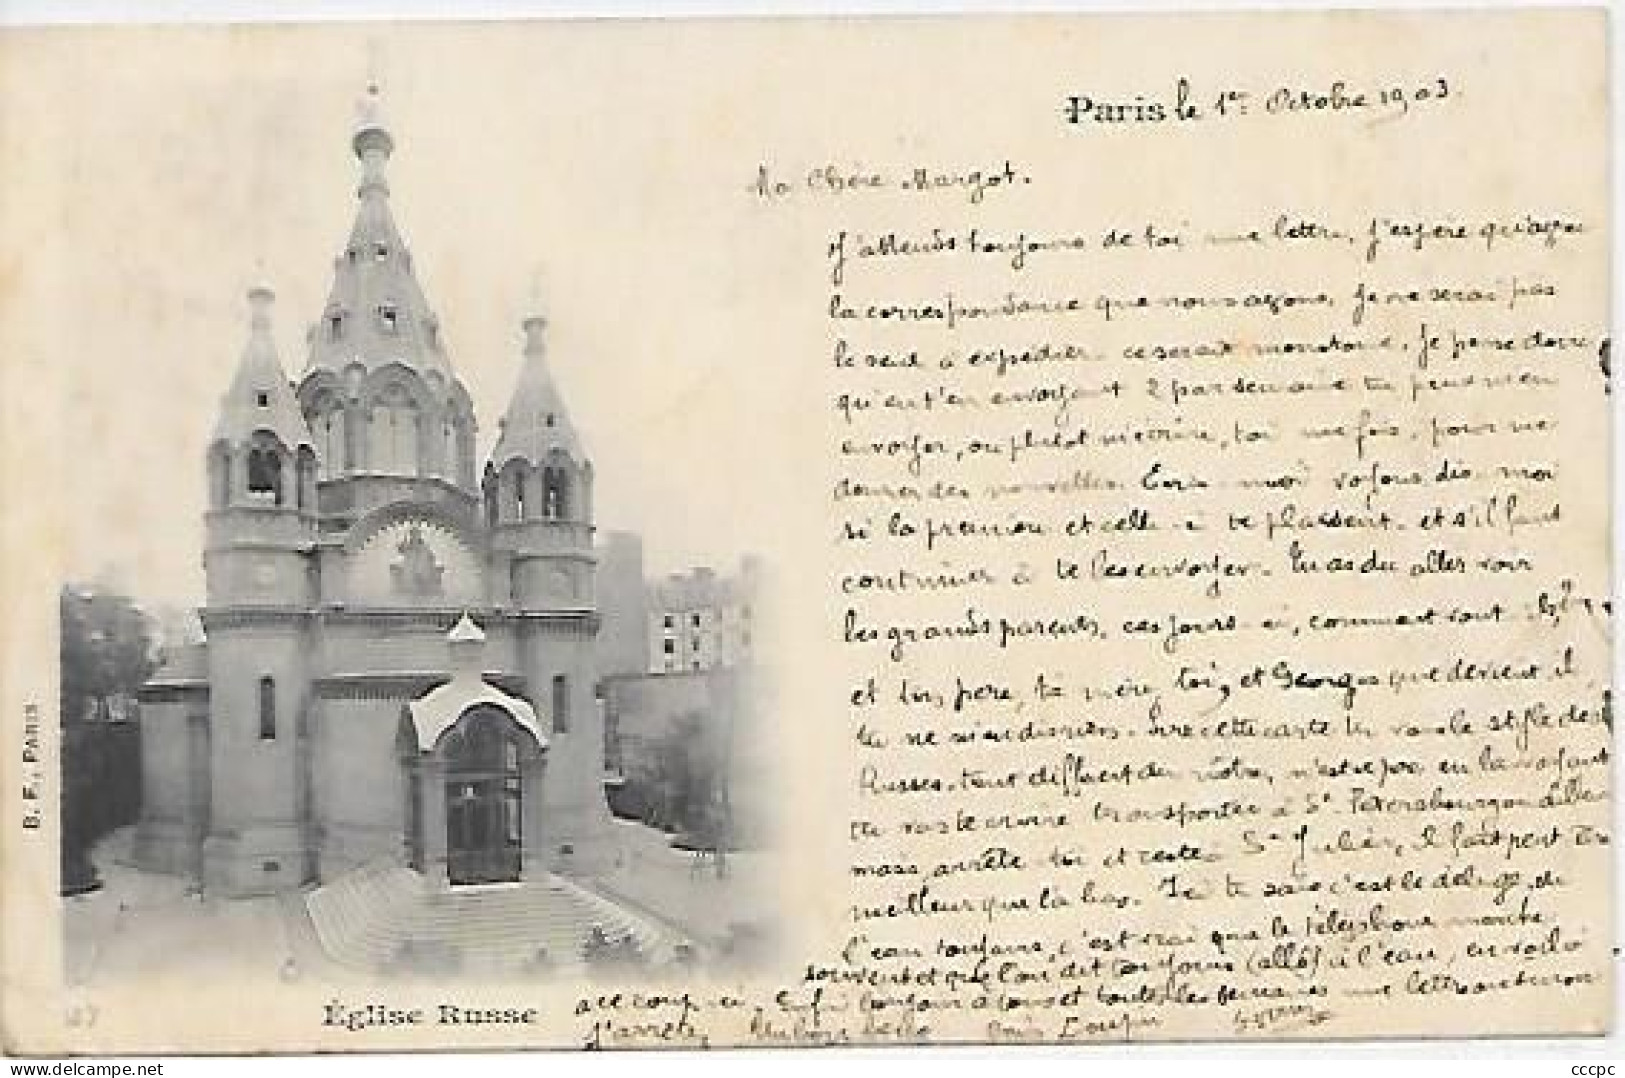 Paris le 1er Octobre 1903.
Ma Chère Margot.
J'attends toujours de toi une lettre, j'espère qu'avec
la correspondance que nous avons, je ne serai pas
le seul à expédier. ce serait monotone. Je pense donc
qu'en t'en envoyant 2 par semaine tu peux m'en
envoyer, ou plutot m'écrire, toi une fois, pour me
donner des nouvelles. Ecris-moi voyons, dis-moi
si la première et celle-ci te plaisent. et s'il faut
continuer à te les envoyer. Tu as du aller voir
les grands parents, ces jours-ci, comment vont-ils,
et ton père, ta mère, toi, et Georges que devient il,
tu ne m'en dis rien. Sur cette carte tu vois le style des
Russes. tout différent du nôtre, n'est ce pas en la voyant
tu vas te croire transportée à St Petersbourg
mais arrête toi et reste à St Julien, il fait peut être
meilleur que là bas. Ici tu sais c'est le déluge, de
l'eau toujours, c'est vrai que le téléphone marche
souvent et que l'on dit toujours (allô) à l'eau, en voilà
à ce coup ci. Enfin bonjour à tous et toutes les semaines une lettre
J'arrête, Ton Loupu
B. F., PARIS
27
Église Russe
cccpc